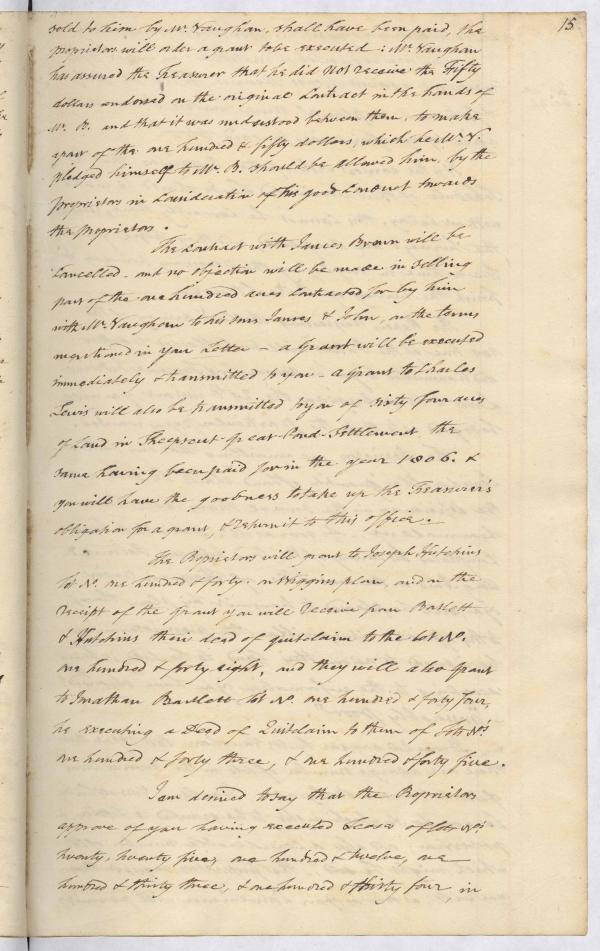 15
sold to him by Mr. Vaughan, shall have been paid, the
proprietors will order a grant to be executed : Mr. Vaughan
has assured the Treasurer that he did not receive the Fifty
dollars endorsed on the original Contract in the hands of
Mr. B. and that it was understood between them, to make
apart of the one hundred & fifty dollars, which he Mr. V.
pledged himself to Mr. B. should be allowed him, by the
proprietors in Consideration of his good Conduct towards
the proprietors.
The Contract with James Brown will be
Cancelled - and no objection will be made in selling
part of the one hundred acres Contracted for by him
with Mr. Vaughan to his sons James & John, on the terms
mentioned in your Letter - a Grant will be executed
immediately & transmitted to you - a Grant to Charles
Lewis will also be transmitted to you of sixty four acres
of Land in Sheepscut great Pond Settlement the
same having been paid for in the year 1806. &
you will have the goodness to take up the Treasurer's
obligation for a grant, & return it to this office.
The Proprietors will grant to Joseph Hutchins
lot No. one hundred & forty. on Wiggins plan, and on the
receipt of the grant you will receive from Bartlett
& Hutchins their deed of quitclaim to the lot No.
one hundred & forty eight, and they will also grant
to Jonathan Bartlett lot No. one hundred & forty four,
he executing a Deed of Quitclaim to them of Lots Nos.
one hundred & forty three, & one hundred & forty five.
I am desired to say that the Proprietors
approve of your having executed Leases of lots Nos.
twenty, twenty five, one hundred & twelve, one
hundred & thirty three, & one hundred & thirty four, in